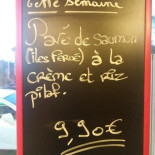 semaine
Pavé de saumon
(îles FÉROÉ) à la
CRÈME et RIZ
pilaf.
9,90€